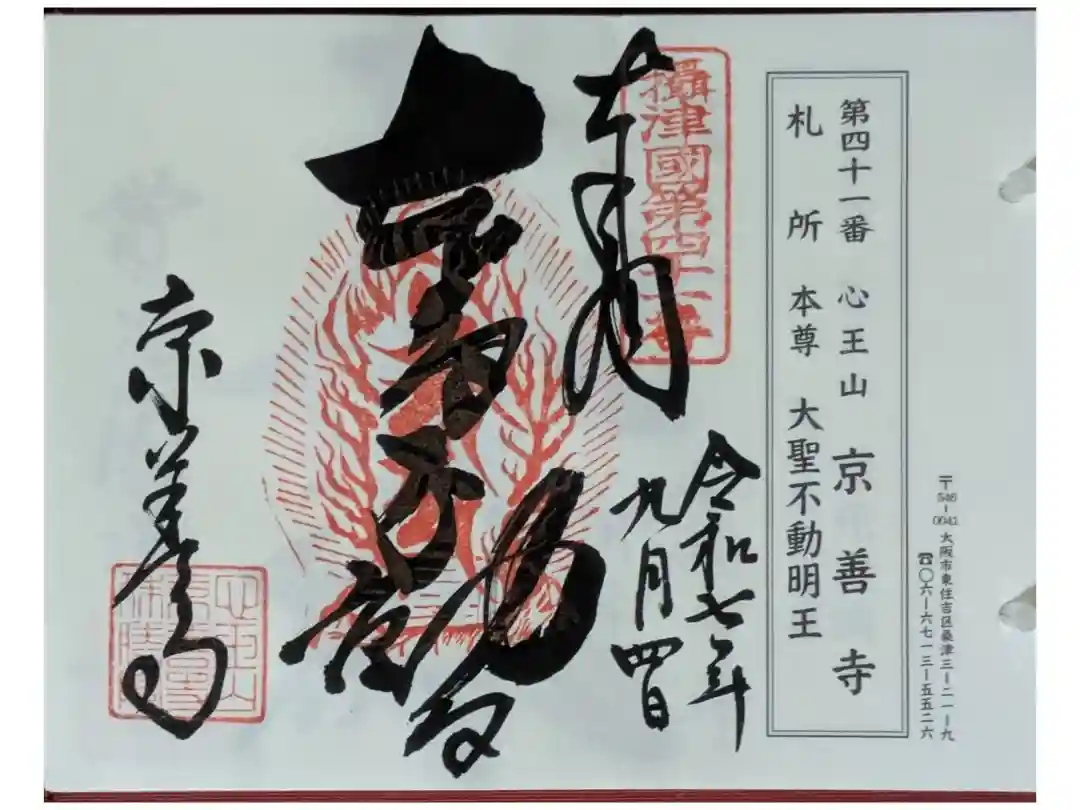 〒546-0041 大阪市東住吉区桑津三-二一-九
☎〇六-六七一三-五五二六
第四十一番 心王山 京善寺
札所 本尊 大聖不動明王
攝津國第四十一番
奉拝
令和七年
九月四日
京善寺